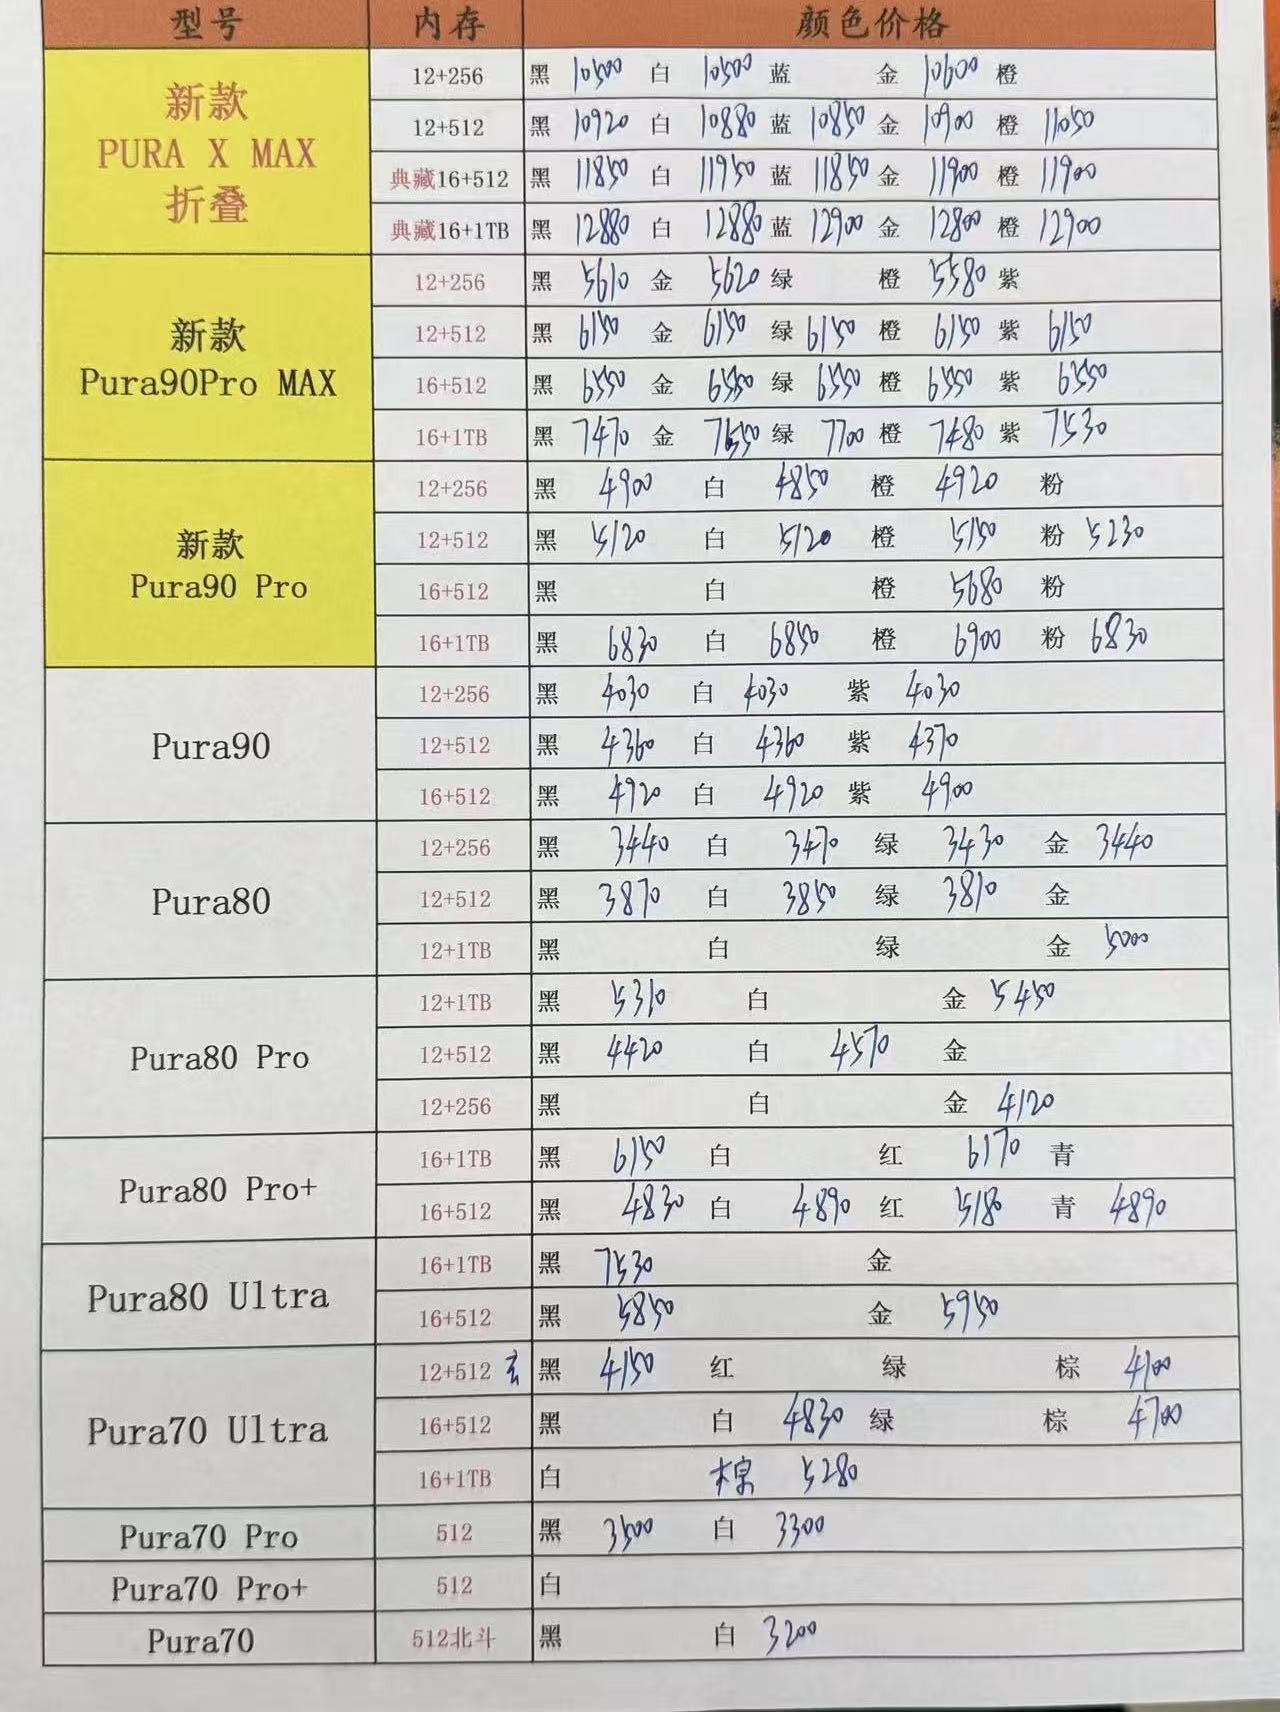 型号 内存 颜色价格
新款 PURA X MAX 折叠
12+256 黑 10500 白 10500 蓝 金 10600 橙
12+512 黑 10920 白 10880 蓝 10850 金 10900 橙 11050
典藏16+512 黑 11850 白 11950 蓝 11850 金 11900 橙 11900
典藏16+1TB 黑 12880 白 12880 蓝 12900 金 12800 橙 12900
新款 Pura90Pro MAX
12+256 黑 5610 金 5620 绿 橙 5580 紫
12+512 黑 6150 金 6150 绿 6150 橙 6150 紫 6150
16+512 黑 6550 金 6550 绿 6550 橙 6550 紫 6550
16+1TB 黑 7470 金 7550 绿 7700 橙 7480 紫 7530
新款 Pura90 Pro
12+256 黑 4900 白 4850 橙 4920 粉
12+512 黑 5120 白 5120 橙 5150 粉 5230
16+512 黑 白 橙 5680 粉
16+1TB 黑 6830 白 6850 橙 6900 粉 6830
Pura90
12+256 黑 4030 白 4030 紫 4030
12+512 黑 4360 白 4360 紫 4370
16+512 黑 4920 白 4920 紫 4900
Pura80
12+256 黑 3440 白 3470 绿 3430 金 3440
12+512 黑 3870 白 3850 绿 3810 金
12+1TB 黑 白 绿 金 5000
Pura80 Pro
12+1TB 黑 5310 白 金 5450
12+512 黑 4420 白 4570 金
12+256 黑 白 金 4120
Pura80 Pro+
16+1TB 黑 6150 白 红 6170 青
16+512 黑 4830 白 4890 红 5180 青 4890
Pura80 Ultra
16+1TB 黑 7530 金
16+512 黑 5850 金 5950
Pura70 Ultra
12+512 玄 黑 4150 红 绿 棕 4100
16+512 黑 白 4830 绿 棕 4700
16+1TB 白 棕 5280
Pura70 Pro 512 黑 3500 白 3300
Pura70 Pro+ 512 白
Pura70 512北斗 黑 白 3200